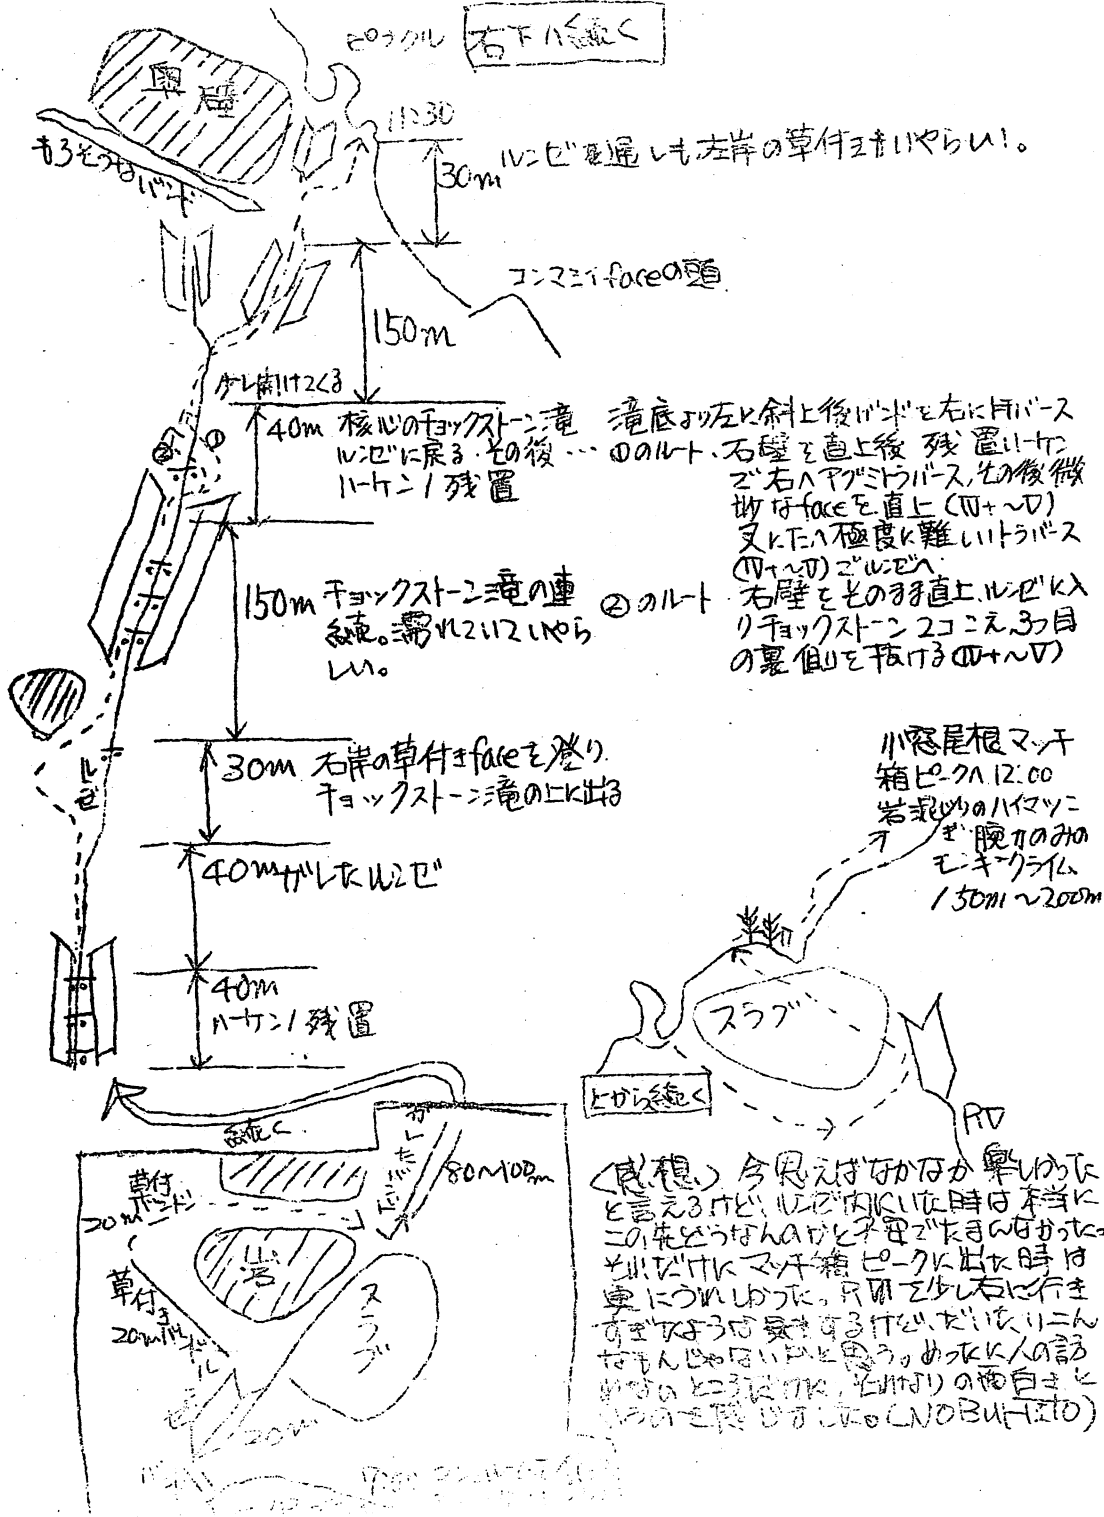 ピナクル
右下へ続く
奥壁
11:30
もろそうなバンド
30m
ルンゼ通しも左岸の草付きもいやらしい。
コンマ三イfaceの頭
150m
少し開けてくる
40m 核心のチョックストーン滝
ルンゼに戻る。その後…
ハーケン1残置
滝底より左に斜上後バンドを右にトラバース
①のルート. 右壁を直上後 残置ハーケン
で右へアブミトラバース,その後微
妙なfaceを直上(Ⅳ+~Ⅴ)
又は左へ極度に難しいトラバース
(Ⅳ+~Ⅴ)でルンゼへ.
②
①
150m チョックストーン滝の連
続。濡れていていやら
しい。
②のルート 右壁をそのまま直上,ルンゼに入
りチョックストーン2コこえ,3つ目
の裏側を抜ける(Ⅳ+~Ⅴ)
30m 右岸の草付きfaceを登り
チョックストーン滝の上に出る
ルンゼ
40mガレたルンゼ
40m
ハーケン1残置
小窓尾根マッチ
箱ピークへ12:00
岩混じりのハイマツこ
ぎ 腕力のみの
モンキークライム
150m~200m
スラブ
上から続く
続く
ガレたルンゼ
80~100m
草付バンド
20m
岩
草付き
20m
スラブ
20m
<感想> 今思えばなかなか楽しかった
と言えるけど、ルンゼ内にいた時は本当に
この先どうなんのかと不安でたまんなかった。
それだけにマッチ箱ピークに出た時は
実にうれしかった。
すぎたような気もするけど、だいたいこん
なもんじゃないかと思う。めったに人の訪
(NOBUHITO)